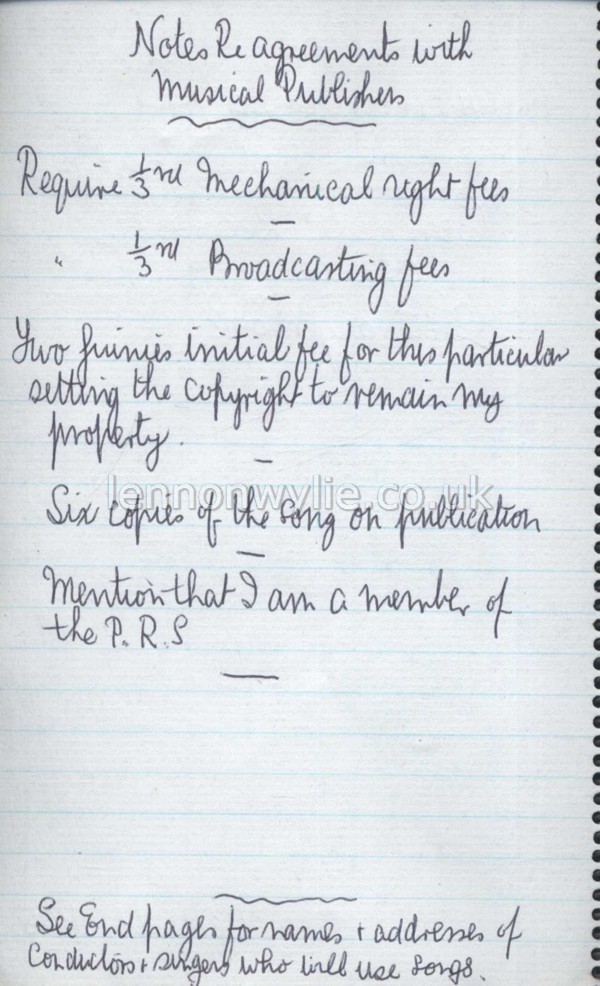 Notes Re agreements with
Musical Publishers
Require 1/3rd Mechanical right fees
" 1/3rd Broadcasting fees
Two Guinies initial fee for this particular
setting the copyright to remain my
property.
lennonwylie.co.uk
Six copies of the song on publication
Mention that I am a member of
the P.R.S
See End pages for names + addresses of
Conductors + singers who will use songs.